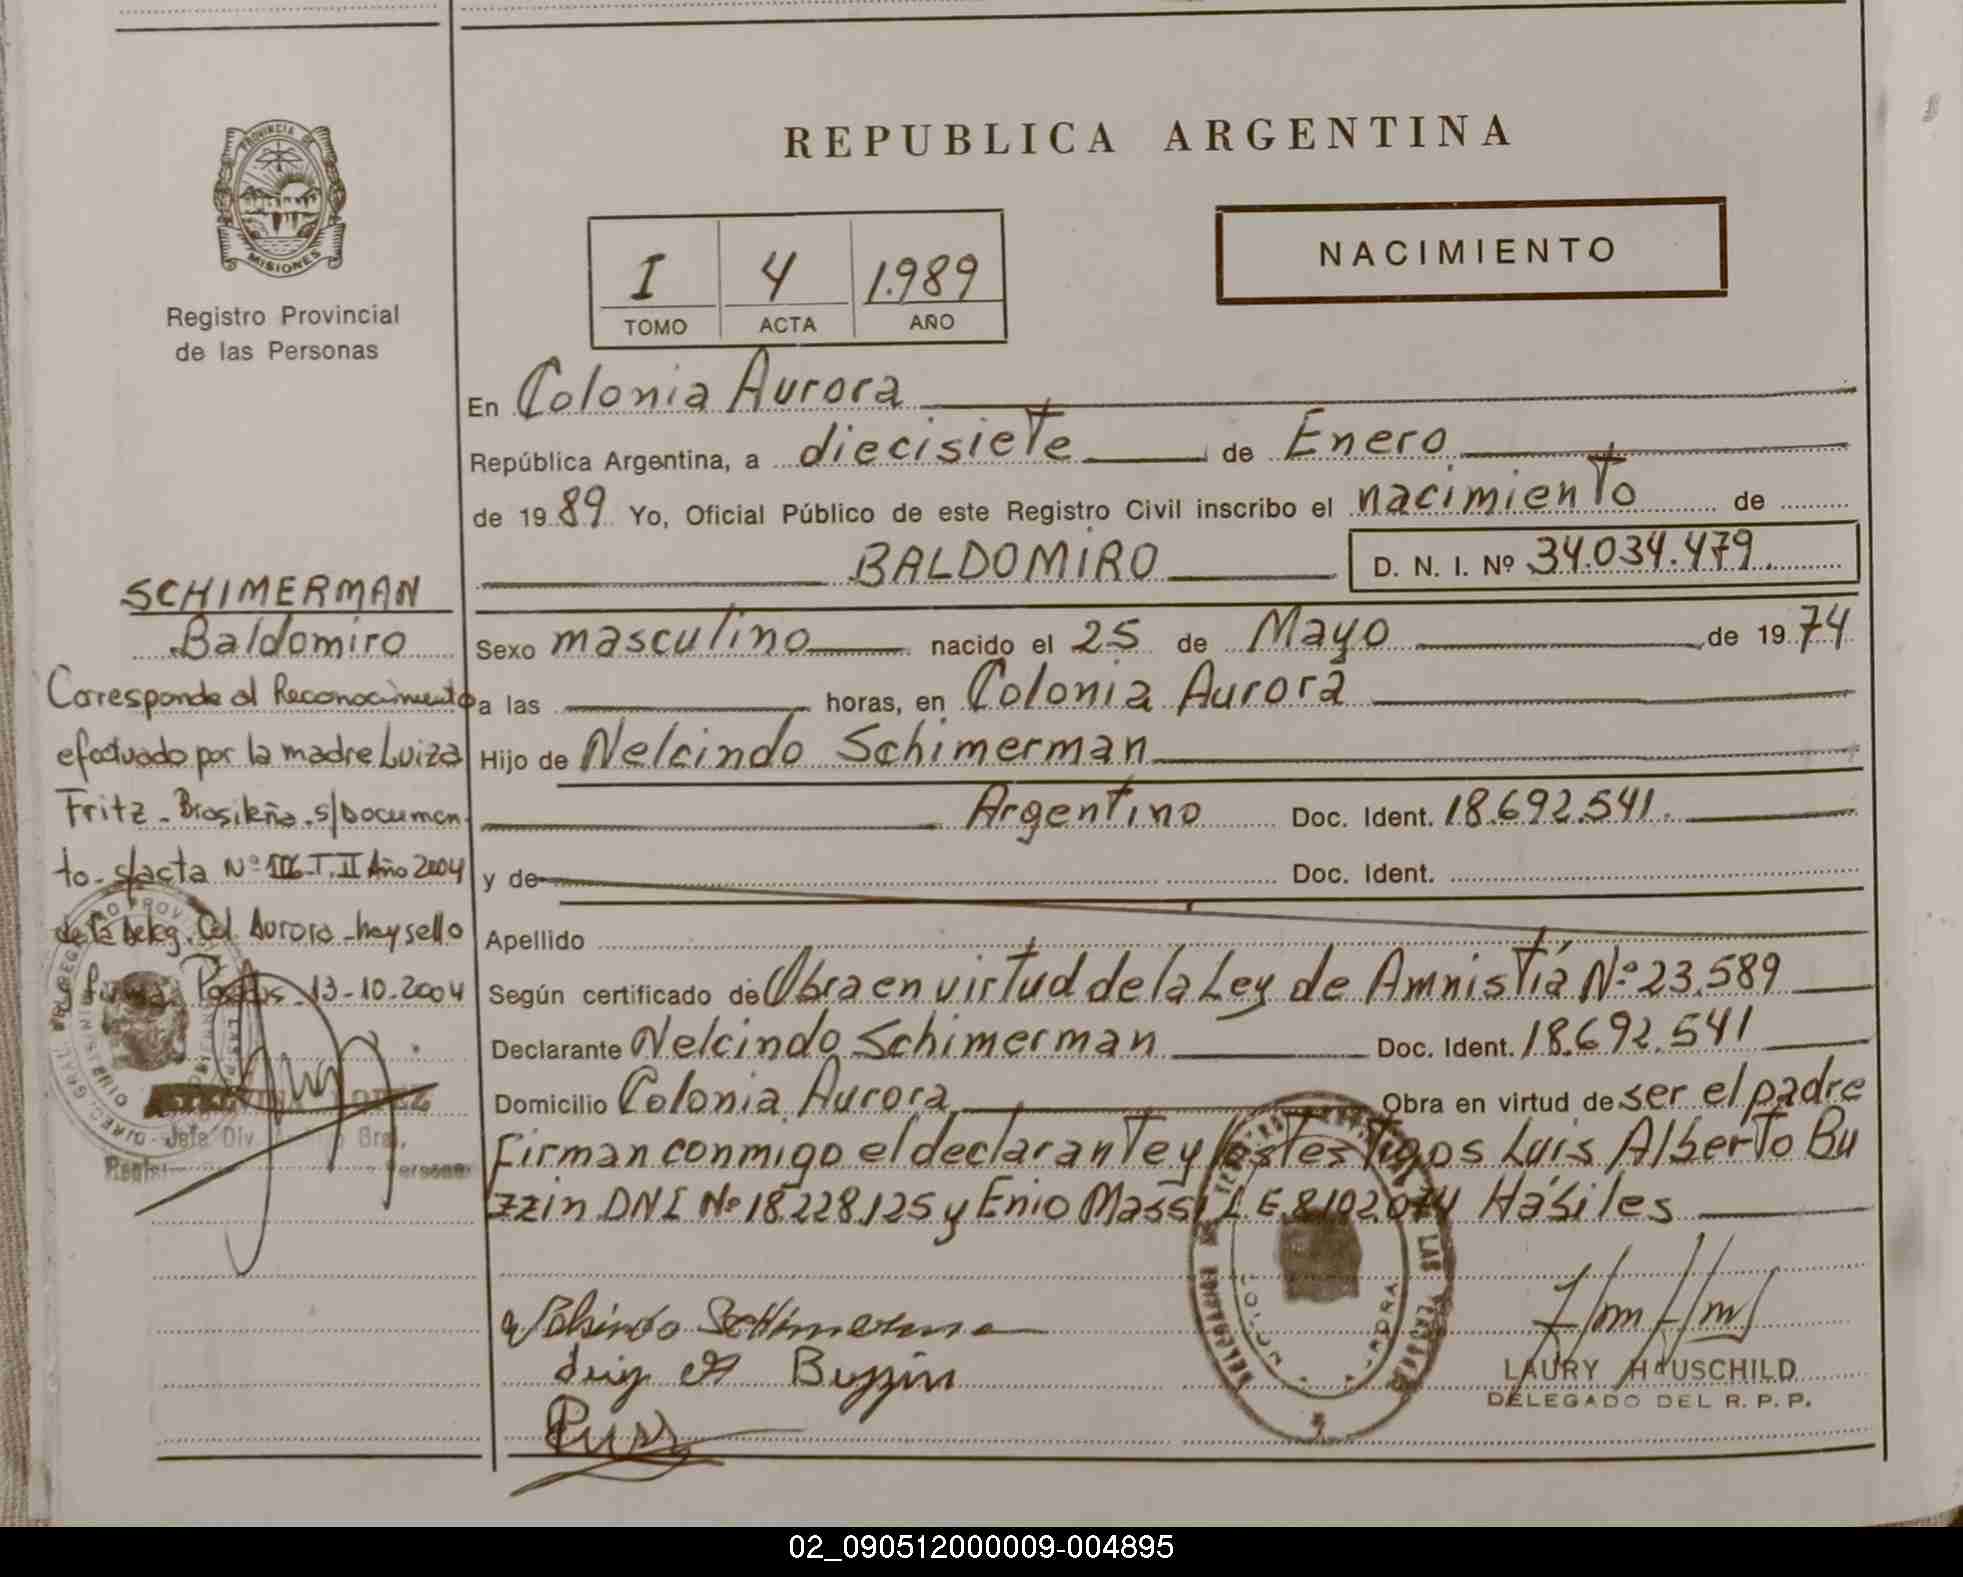 REPUBLICA ARGENTINA
NACIMIENTO
I 4 1.989
TOMO ACTA AÑO
PROVINCIA DE
MISIONES
Registro Provincial
de las Personas
En Colonia Aurora
República Argentina, a diecisiete de Enero
de 1989 Yo, Oficial Público de este Registro Civil inscribo el nacimiento de
BALDOMIRO D. N. I. Nº 34.034.479
Sexo masculino nacido el 25 de Mayo de 1974
a las horas, en Colonia Aurora
Hijo de Nelcindo Schimerman
Argentino Doc. Ident. 18.692.541.
y de Doc. Ident.
Apellido
Según certificado de Obra en virtud de la Ley de Amnistía Nº 23.589
Declarante Nelcindo Schimerman Doc. Ident. 18.692.541
Domicilio Colonia Aurora Obra en virtud de ser el padre
Firman conmigo el declarante y los testigos Luis Alberto Bu
zzin DNI Nº 18.228.125 y Enio Massi L E 8.102.074 Hábiles
LAURY HAUSCHILD
DELEGADO DEL R. P. P.
SCHIMERMAN
Baldomiro
Corresponde al Reconocimiento
efectuado por la madre Luiza
Fritz - Brasileña - s/Documen
to - s/acta Nº III - T. II Año 2004
de la Deleg. Col. Aurora - hay sello
y firma. Posadas - 13-10-2004
02_090512000009-004895